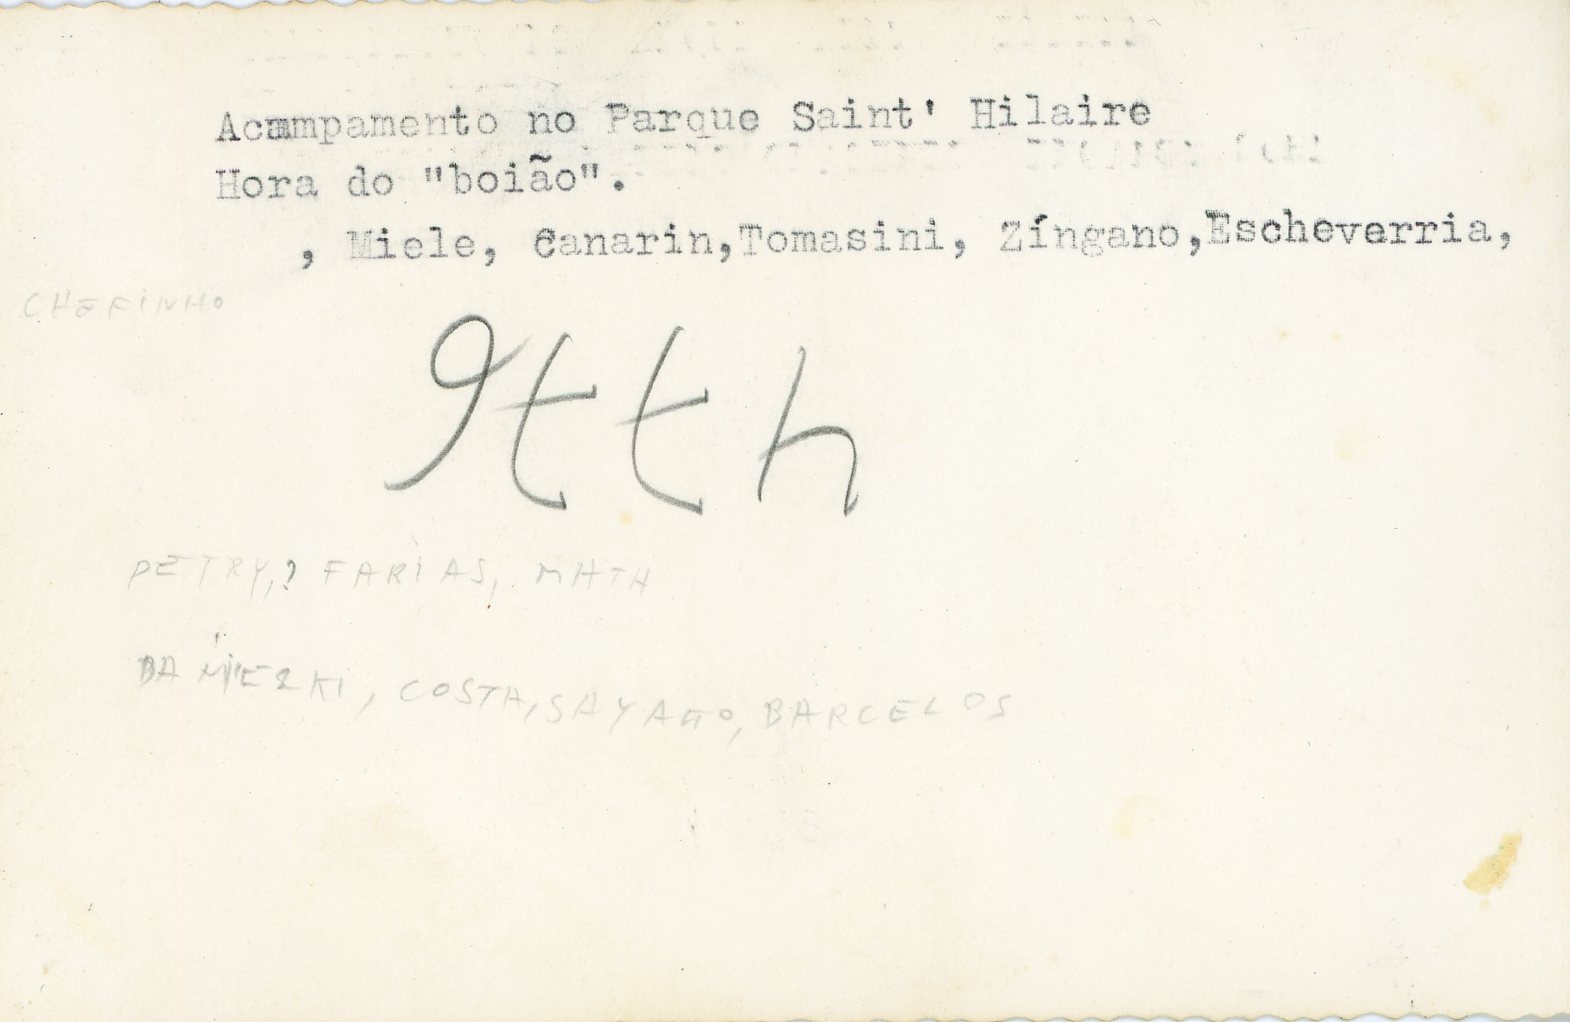 Acampamento no Parque Saint' Hilaire
Hora do "boião".
, Miele, Canarin,Tomasini, Zíngano,Escheverria,
CHEFINHO
9tth
PETRY,? FARIAS, MATH
COSTA, SAYAGO, BARCELOS